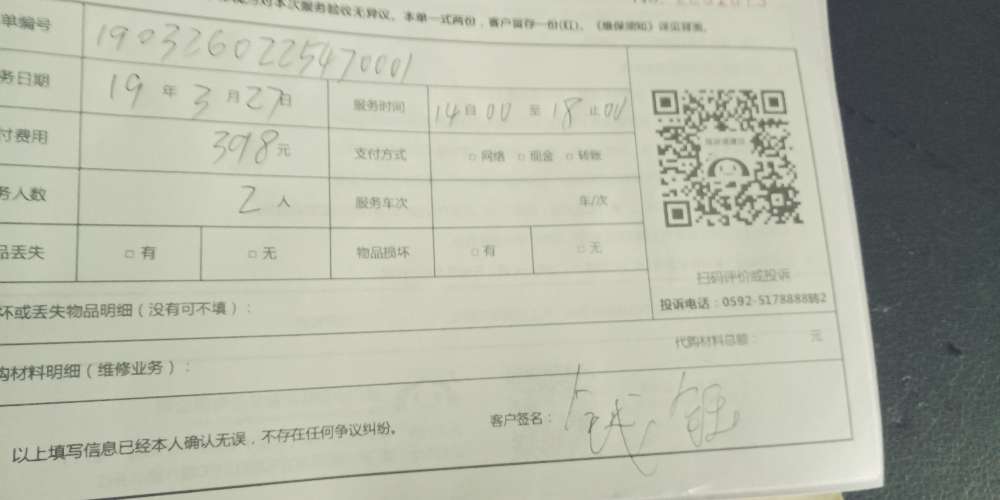 对本次服务验收无异议。本单一式两份，客户留存一份(红)。《维保须知》详见背面。
单编号 1903260225470001
务日期 19 年 3 月 27 日 服务时间 14 自 00 至 18 止 00
付费用 398 元 支付方式 □ 网络 □ 现金 □ 转账
务人数 2 人 服务车次 车/次
品丢失 □ 有 □ 无 物品损坏 □ 有 □ 无
扫码评价或投诉
投诉电话：0592-5178888转2
坏或丢失物品明细（没有可不填）：
购材料明细（维修业务）： 代购材料总额： 元
以上填写信息已经本人确认无误，不存在任何争议纠纷。 客户签名：